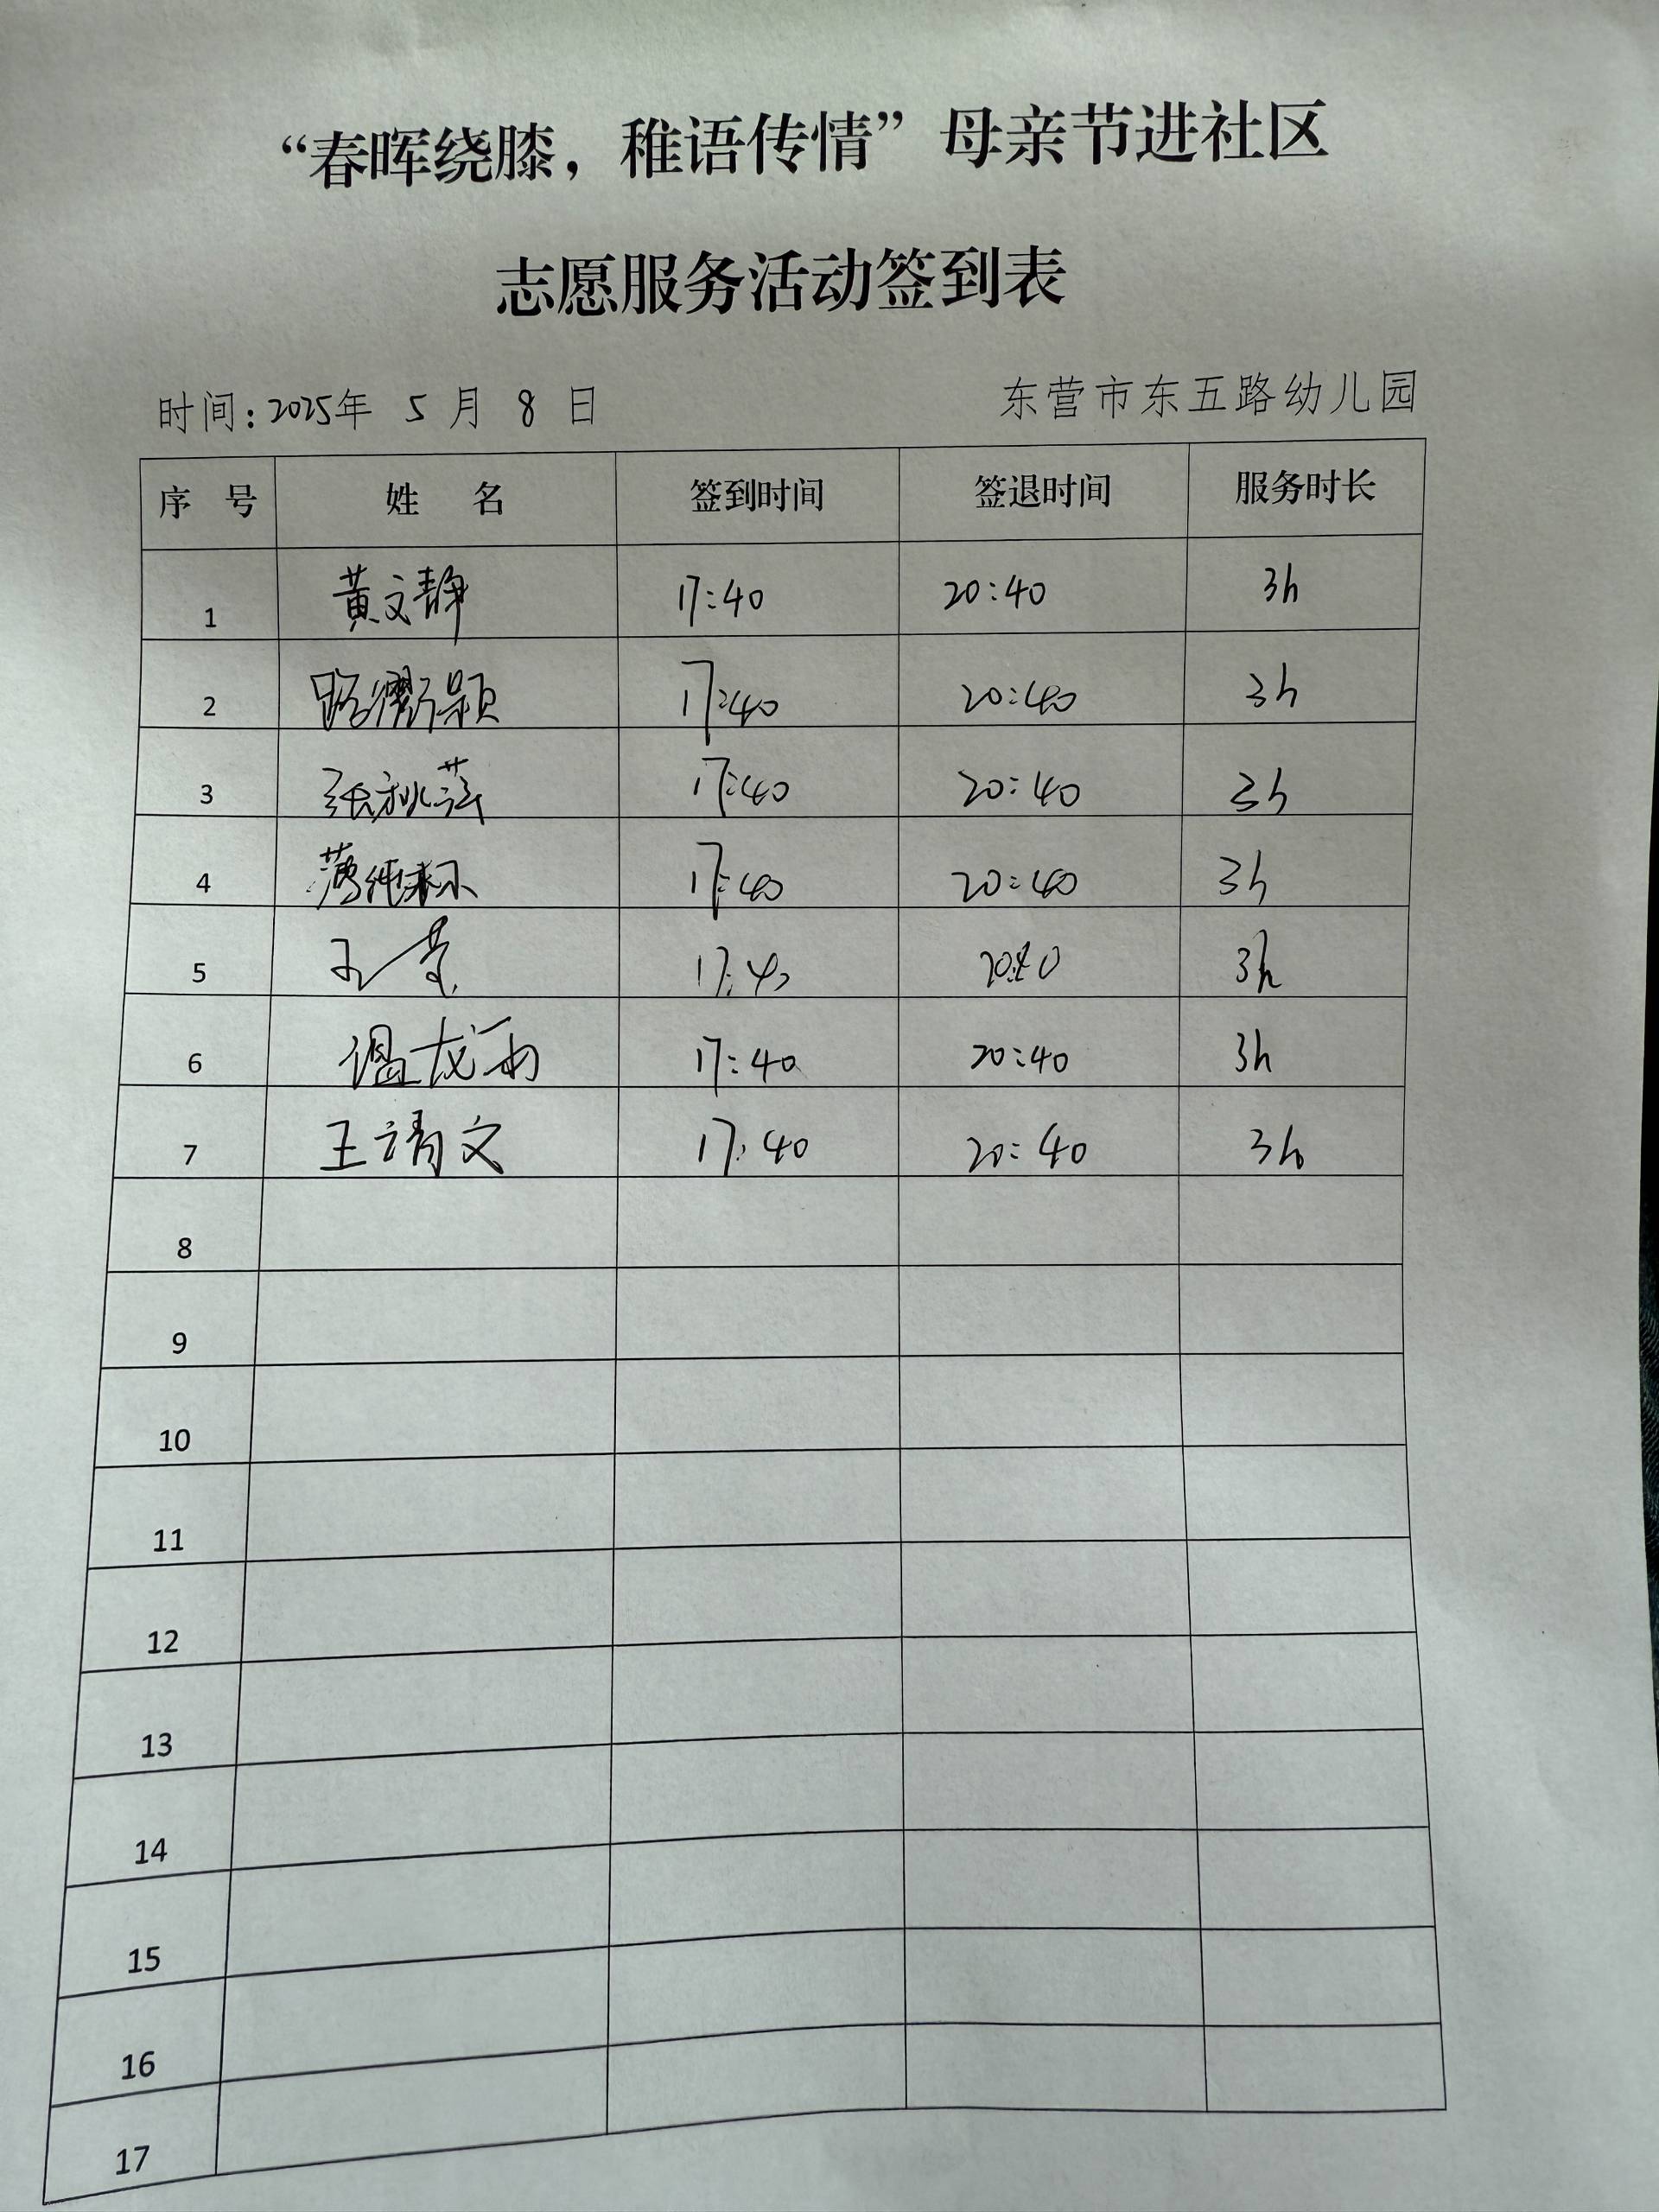 “春晖绕膝，稚语传情”母亲节进社区
志愿服务活动签到表
时间：2025年 5 月 8 日 东营市东五路幼儿园
序 号 姓 名 签到时间 签退时间 服务时长
1 黄文静 17:40 20:40 3h
2 17:40 20:40 3h
3 张秋萍 17:40 20:40 3h
4 17:40 20:40 3h
5 17:40 20:40 3h
6 温龙雨 17:40 20:40 3h
7 王靖文 17:40 20:40 3h
8
9
10
11
12
13
14
15
16
17